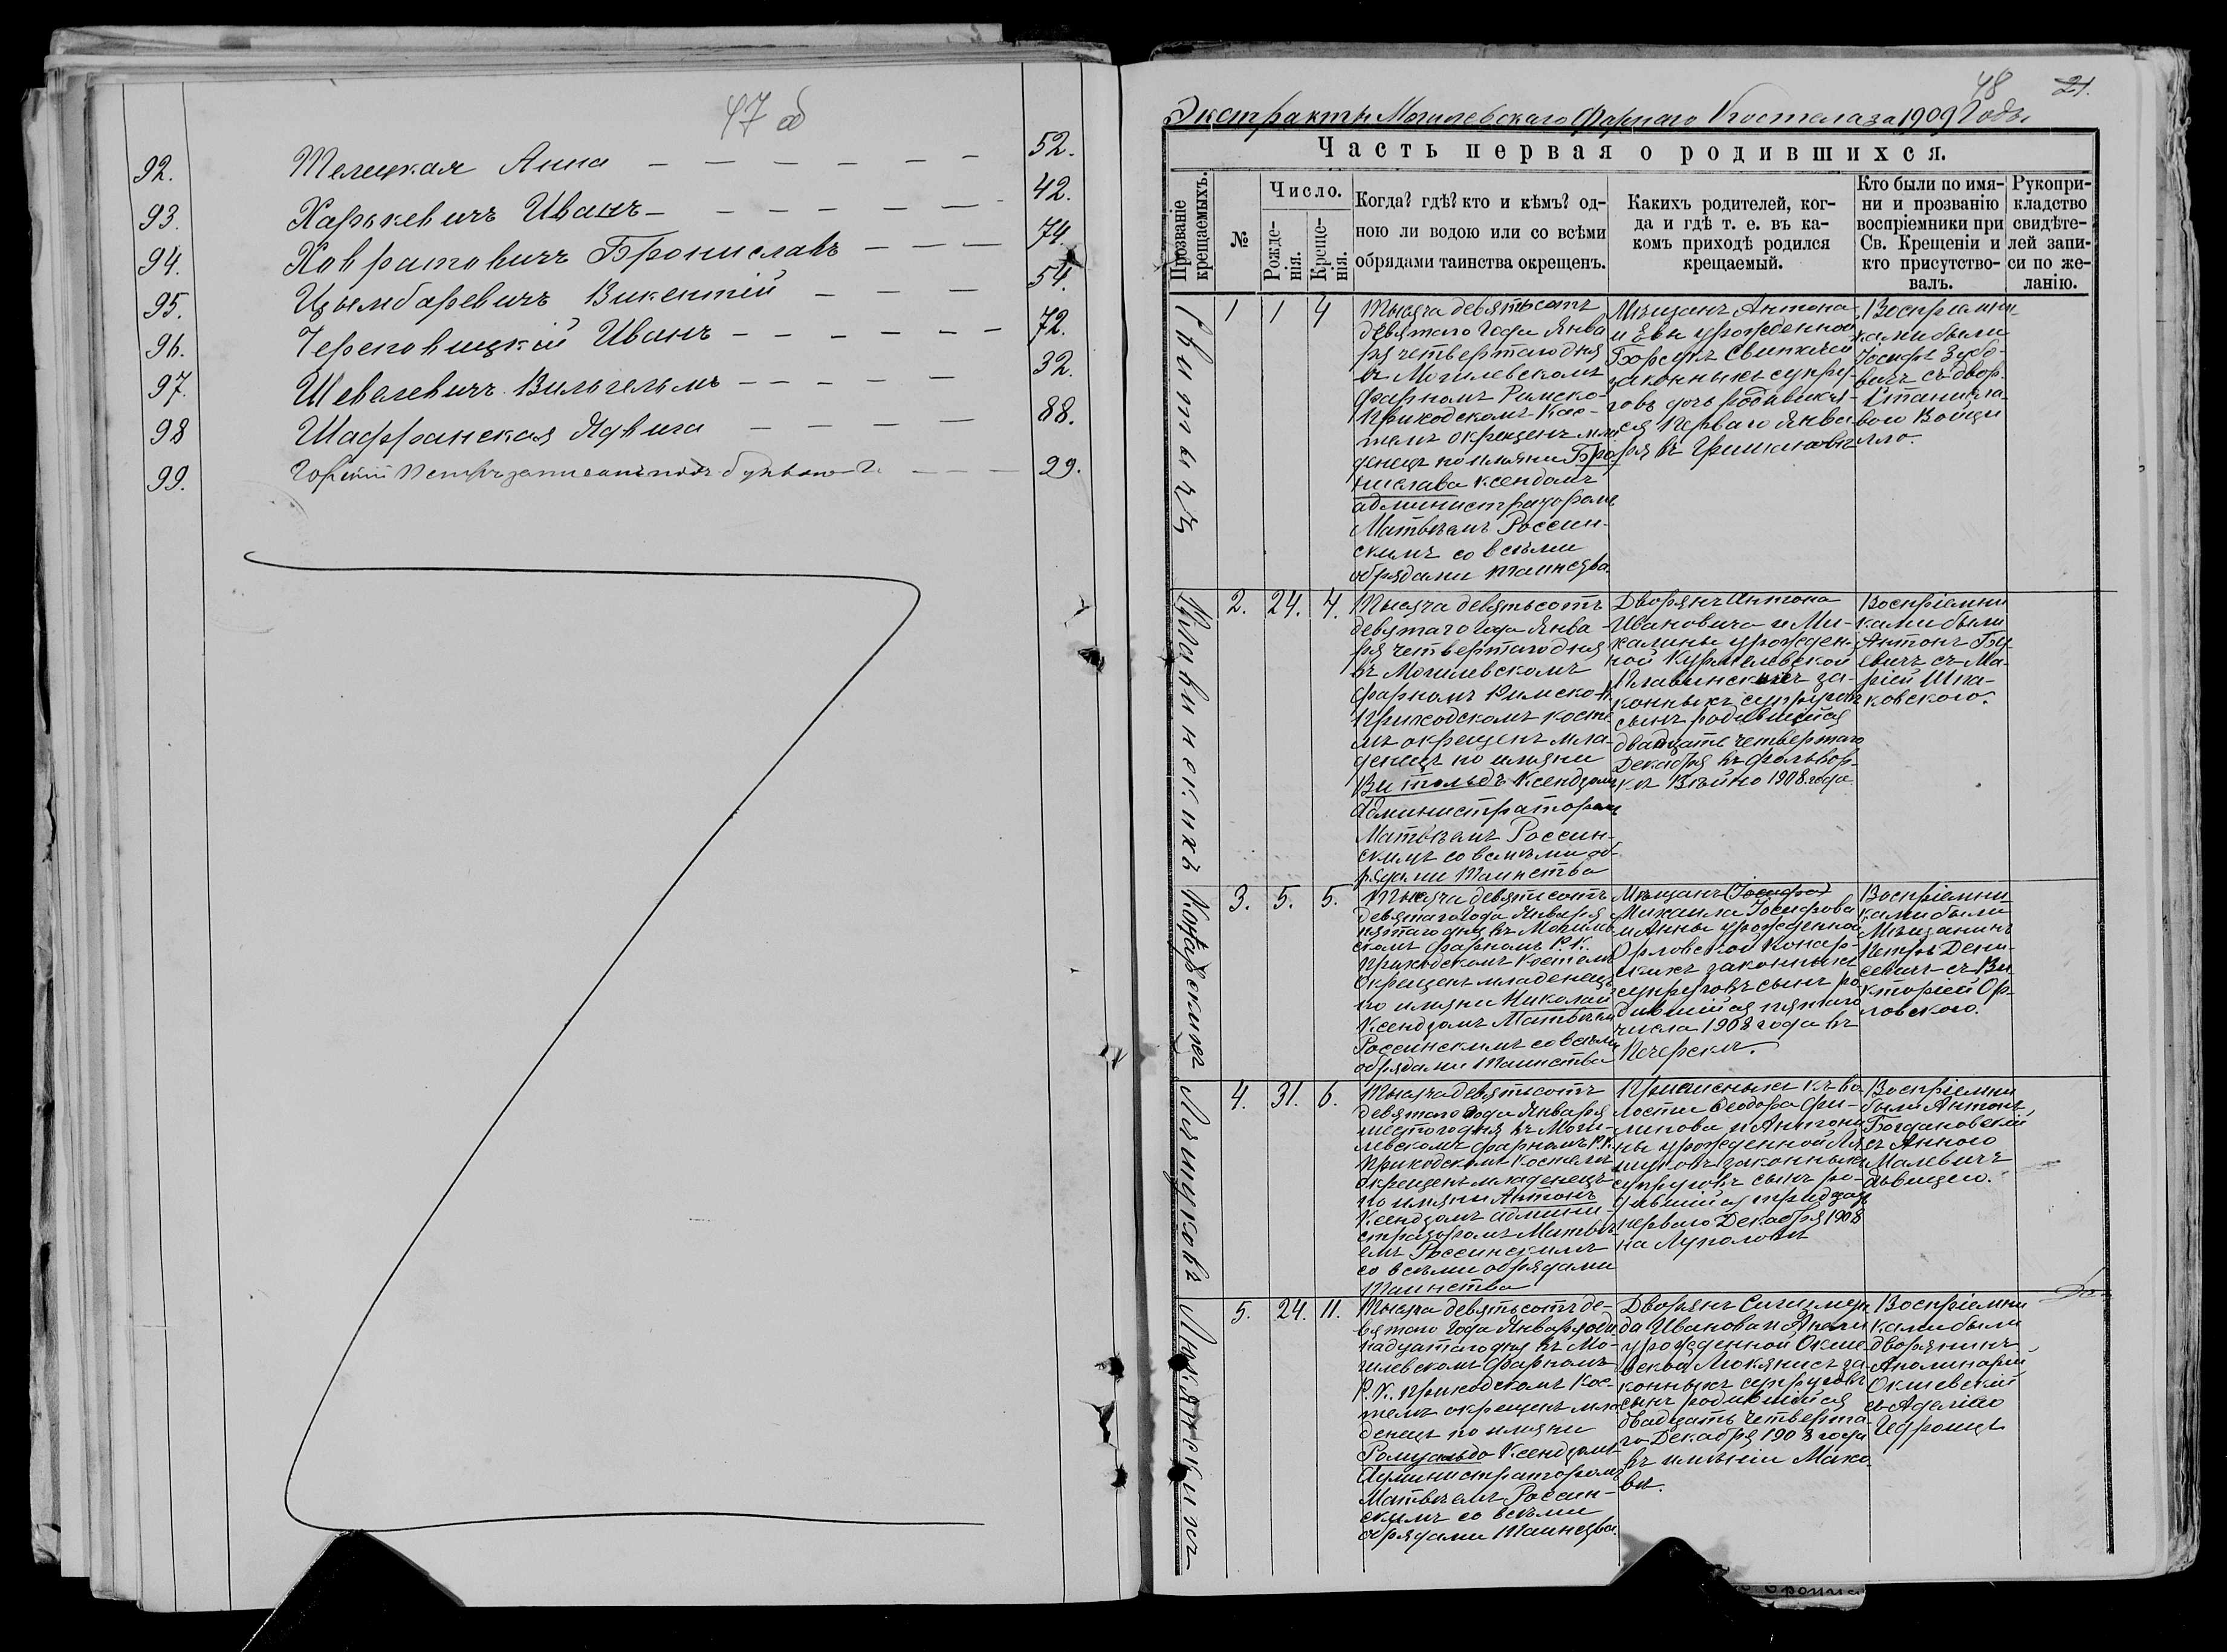 47 об
92. Телецкая Анна — — — — — — — 52.
93. Харькевичъ Иванъ — — — — — — — 42.
94. Ховратовичъ Брониславъ — — — 74.
95. Цымбаревичъ Викентій — — — 54.
96. Череповицкій Иванъ — — — — — — 72.
97. Шевалевичъ Вильгельмъ — — — — — 32.
98 Шафранская Ядвига — — — — — 88.
99. Горскій Петръ записанъ подъ буквою Г. — — — 29.
48 21.
Экстракты Могилевскаго Фарнаго Костела за 1909 Годъ
Часть первая о родившихся.
Прозваніе крещаемыхъ.
№
Число.
Рожде-
нія.
Креще-
нія.
Когда? гдѣ? кто и кѣмъ? од-
ною ли водою или со всѣми
обрядами таинства окрещенъ.
Какихъ родителей, ког-
да и гдѣ т. е. въ ка-
комъ приходѣ родился
крещаемый.
Кто были по имя-
ни и прозванію
воспріемники при
Св. Крещеніи и
кто присутство-
валъ.
Рукопри-
кладство
свидѣте-
лей запи-
си по же-
ланію.
1 1 4
Тысяча девятьсотъ
девятаго Года Янва
ря четвертаго дня
въ Могилевскомъ
фарномъ Римско-
Приходскомъ Кос-
телѣ окрещенъ мла
денецъ по имяни Бро
нислава Ксендзомъ
администраторомъ
Матвѣемъ Россин-
скимъ со всѣми
обрядами таинства.
Мѣщанъ Антона
и Евы урожденной
Борсукъ
законныхъ супру-
говъ дочь родивша-
яся Перваго Янва
ря въ
Воспріемни
ками были
Іосифъ Зубо-
вичъ съ двор.
Станисла-
вою Войци
лло.
Главинскихъ
2. 24. 4.
Тысяча девятьсотъ
девятаго Года Янва
ря четвертаго дня
въ Могилевскомъ
фарномъ Римско-К.
Приходскомъ косте
лѣ окрещенъ мла-
денецъ по имяни
Витольдъ Ксендзомъ
Администраторомъ
Матвѣемъ Россин-
скимъ со всѣми об-
рядами Таинства
Дворянъ Антона
Ивановича и Ми-
халины урожден-
ной
Главинскихъ за-
конныхъ супруговъ
сынъ родившійся
двадцать четвертаго
Декабря въ фольвар-
кѣ Вѣйно 1908 года.
Воспріемни
ками были
Антонъ Бу-
евичъ съ Ма-
ріей Шпа-
ковского.
Конарскихъ
3. 5. 5.
Тысяча девятьсотъ
девятаго Года Января
пятаго дня въ Могилев
скомъ фарномъ Р. К.
Приходскомъ Костелѣ
Окрещенъ младенецъ
по имяни Николай
Ксендзомъ Матвѣемъ
Россинскимъ со всѣми
обрядами Таинства
Мѣщанъ Іосифа
Михаила Іосифова
и Анны урожденной
Орловской Конар-
скихъ законныхъ
супруговъ сынъ ро
дившійся пятаго
числа 1908 года въ
Печерскѣ.
Воспріемни
ками были
Мѣщанинъ
Петръ Дени-
севичъ съ Ви
кторіей Ор-
ловского.
Ляшуковъ
4. 31. 6.
Тысяча девятьсотъ
девятаго Года Января
шестого дня въ Моги-
левскомъ фарномъ Р. К.
Приходскомъ Костелѣ
окрещенъ младенецъ
по имяни Антонъ
Ксендзомъ админи-
страторомъ Матвѣ-
емъ Россинскимъ
со всѣми обрядами
Таинства
Приписныхъ къ во
лости Ѳеодора Фи-
липова и Антони-
ны урожденной Ля
шуковъ законныхъ
супруговъ сынъ ро-
дившійся тридцать
перваго Декабря 1908
на Луполовѣ
Воспріемни
были Антонъ
Богдановскій
съ Анною
Малевичъ
5. 24. 11.
Тысяча девятьсотъ де-
вятаго Года Января оди
надцатаго дня въ Мо-
гилевскомъ фарномъ
Р. К. приходскомъ Кос-
телѣ окрещенъ мла-
денецъ по имяни
Ромуальдъ Ксендзомъ
Администраторомъ
Матвѣемъ Россин-
скимъ со всѣми
обрядами Таинства.
Дворянъ Сигизмун
да Иванова и
урожденной Окше
вской за-
конныхъ супруговъ
сынъ родившійся
двадцать четверта-
го Декабря 1908 года
въ имѣніи Мако-
вѣ.
Воспріемни
ками были
дворянинъ
Аполинарій
Окшевскій
съ Аделію